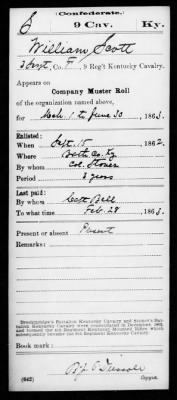 (Confederate.)
S 9 Cav. Ky.
William Scott
3 Sergt, Co. F, 9 Reg't Kentucky Cavalry.
Appears on
Company Muster Roll
of the organization named above,
for Mch 1 to June 30, 1863.
Enlisted:
When Sept. 15, 1862.
Where Bath Co. Ky
By whom Col. Stoner
Period 3 years
Last paid:
By whom Capt. Bell
To what time Feb. 28, 1863.
Present or absent Present
Remarks:
Breckinridge's Battalion Kentucky Cavalry and Stoner's Battalion Kentucky Cavalry were consolidated in December, 1862, and formed the 9th Regiment Kentucky Cavalry which subsequently became the
Book mark:
(642) Copyist.